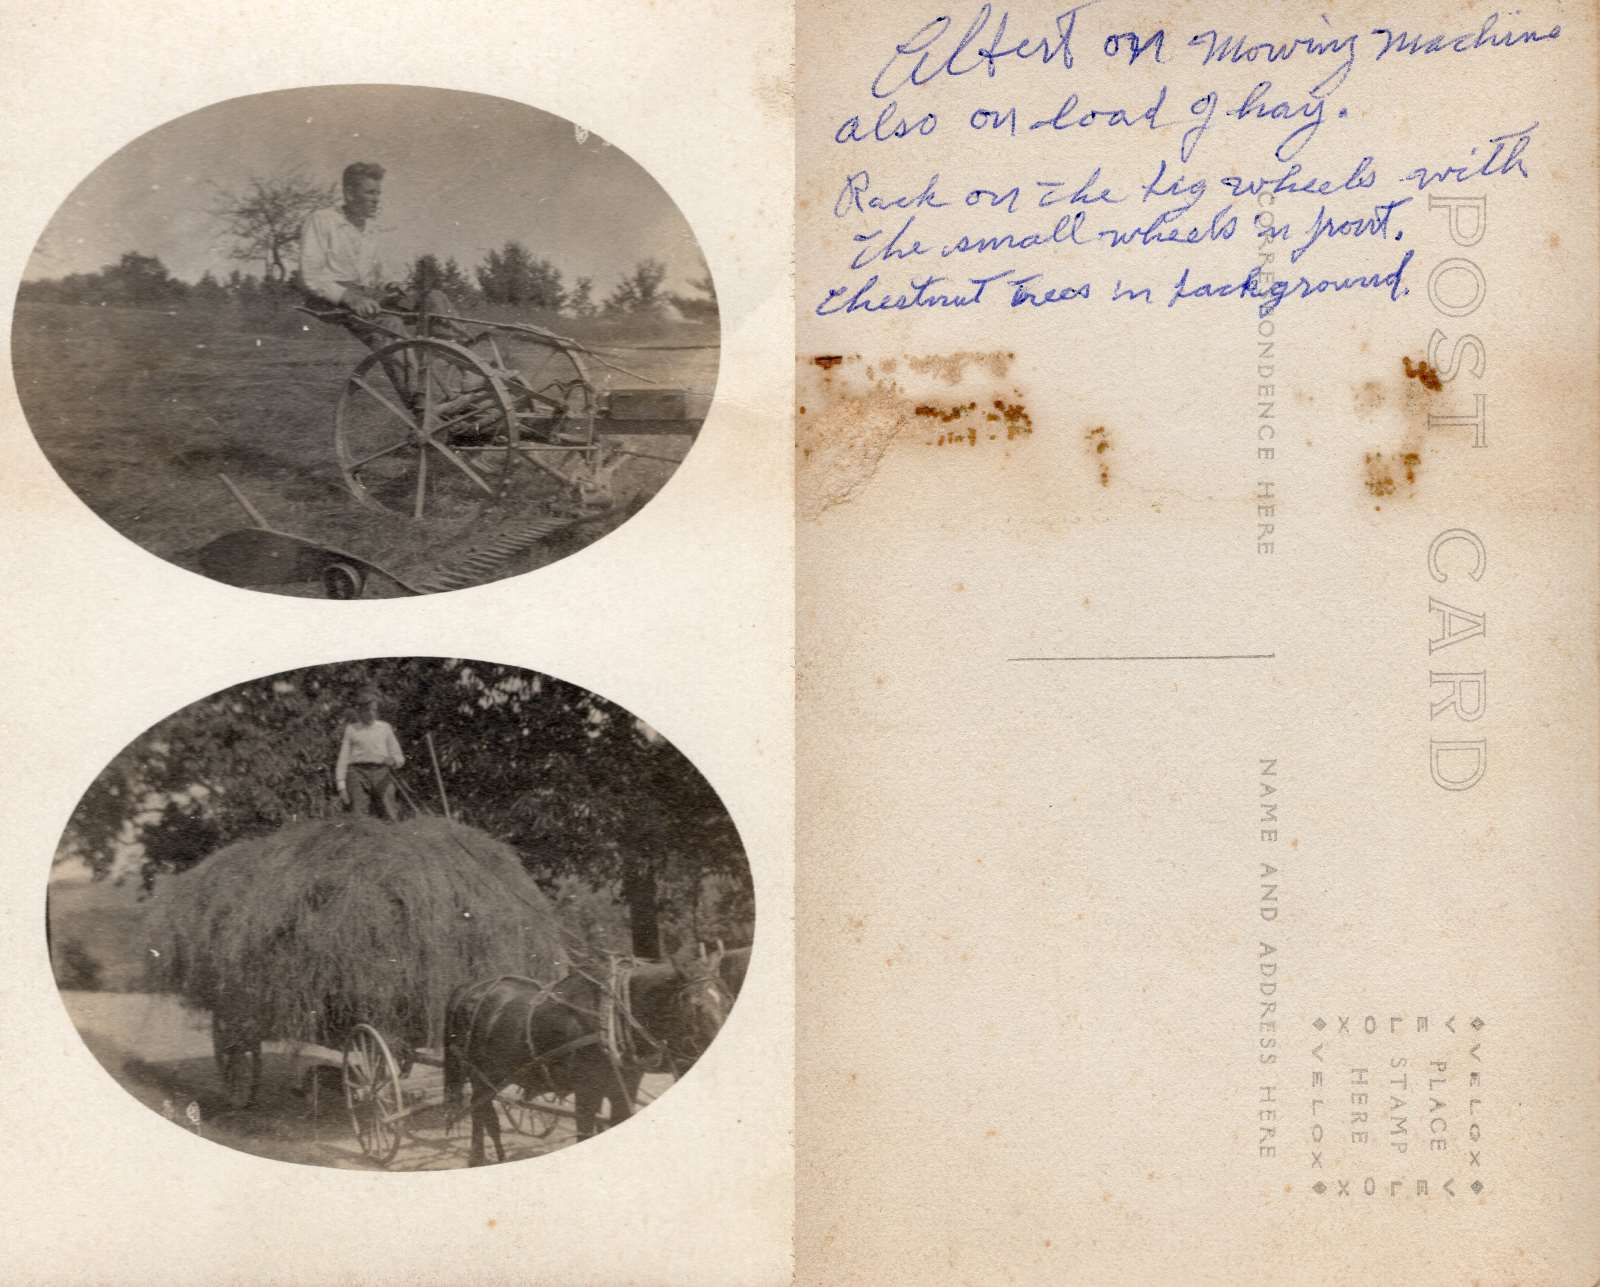 Albert on mowing machine
also on load of hay.
Rack on the big wheels with
the small wheels in front.
Chestnut Trees in background.
POST CARD
CORRESPONDENCE HERE
NAME AND ADDRESS HERE
VELOX
VELOX
PLACE
STAMP
HERE
VELOX
VELOX